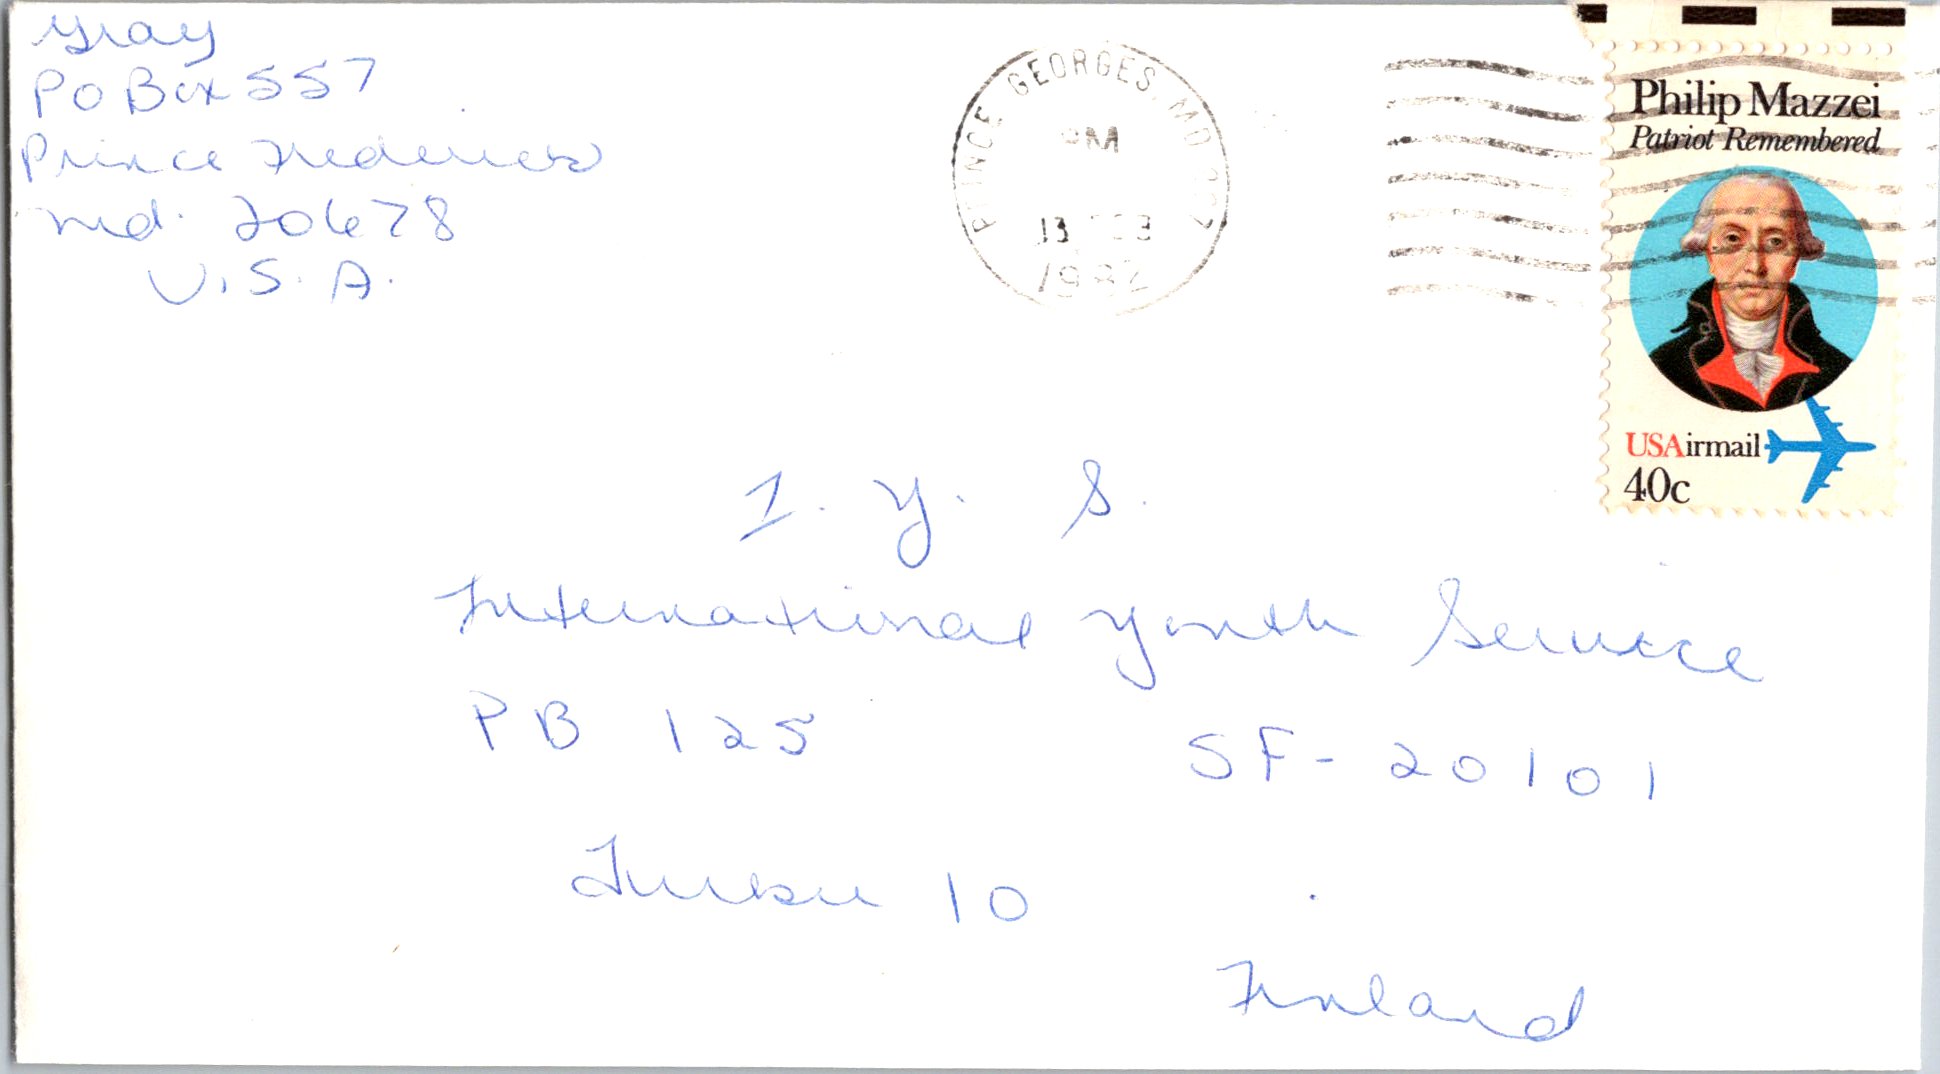 Gray
PO Box 557
Prince Frederick
Md. 20678
U.S.A.
PRINCE GEORGES, MD 207
PM
13
1982
Philip Mazzei
Patriot Remembered
USAirmail
40c
I. Y. S.
International Youth Service
PB 125 SF-20101
Turku 10
Finland